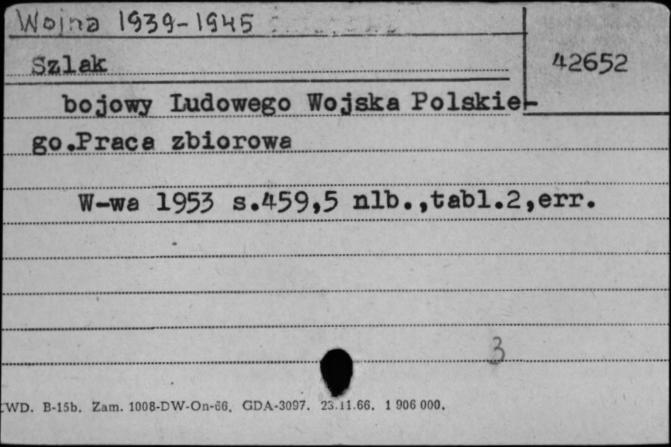 Wojna 1939-1945
Szlak
42652
bojowy Ludowego Wojska Polskie-
go.Praca zbiorowa
W-wa 1953 s.459,5 nlb.,tabl.2,err.
3
WD. B-15b. Zam. 1008-DW-On-66. GDA-3097. 23.11.66. 1 906 000.